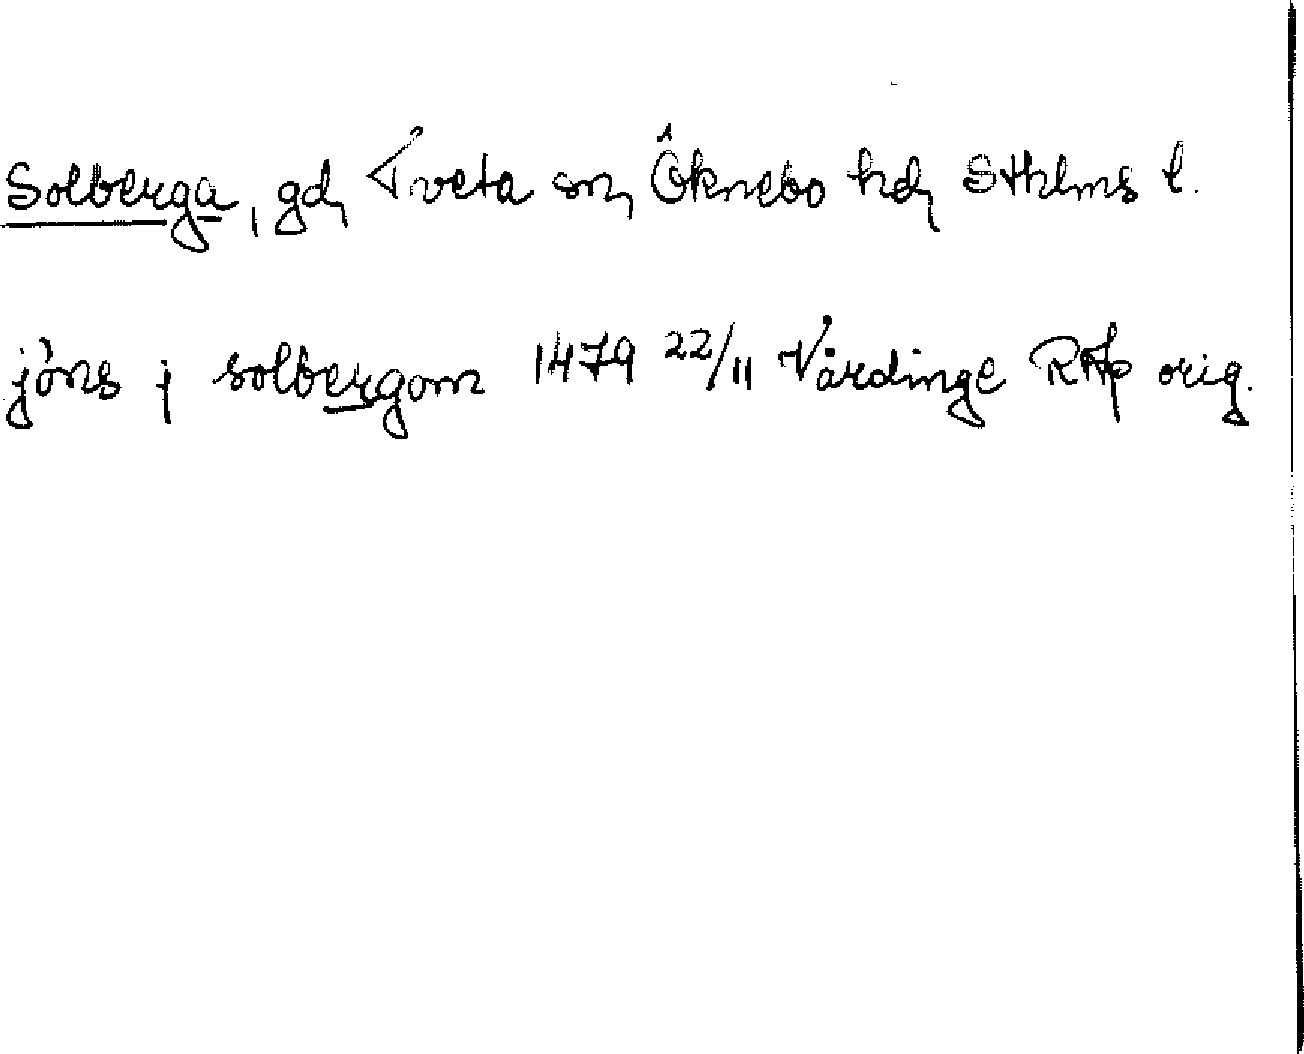 Solberga, gd, Tveta sn, Öknebo hd, Sthlms l.
jöns j solbergom 1479 22/11 Vårdinge RAp orig.